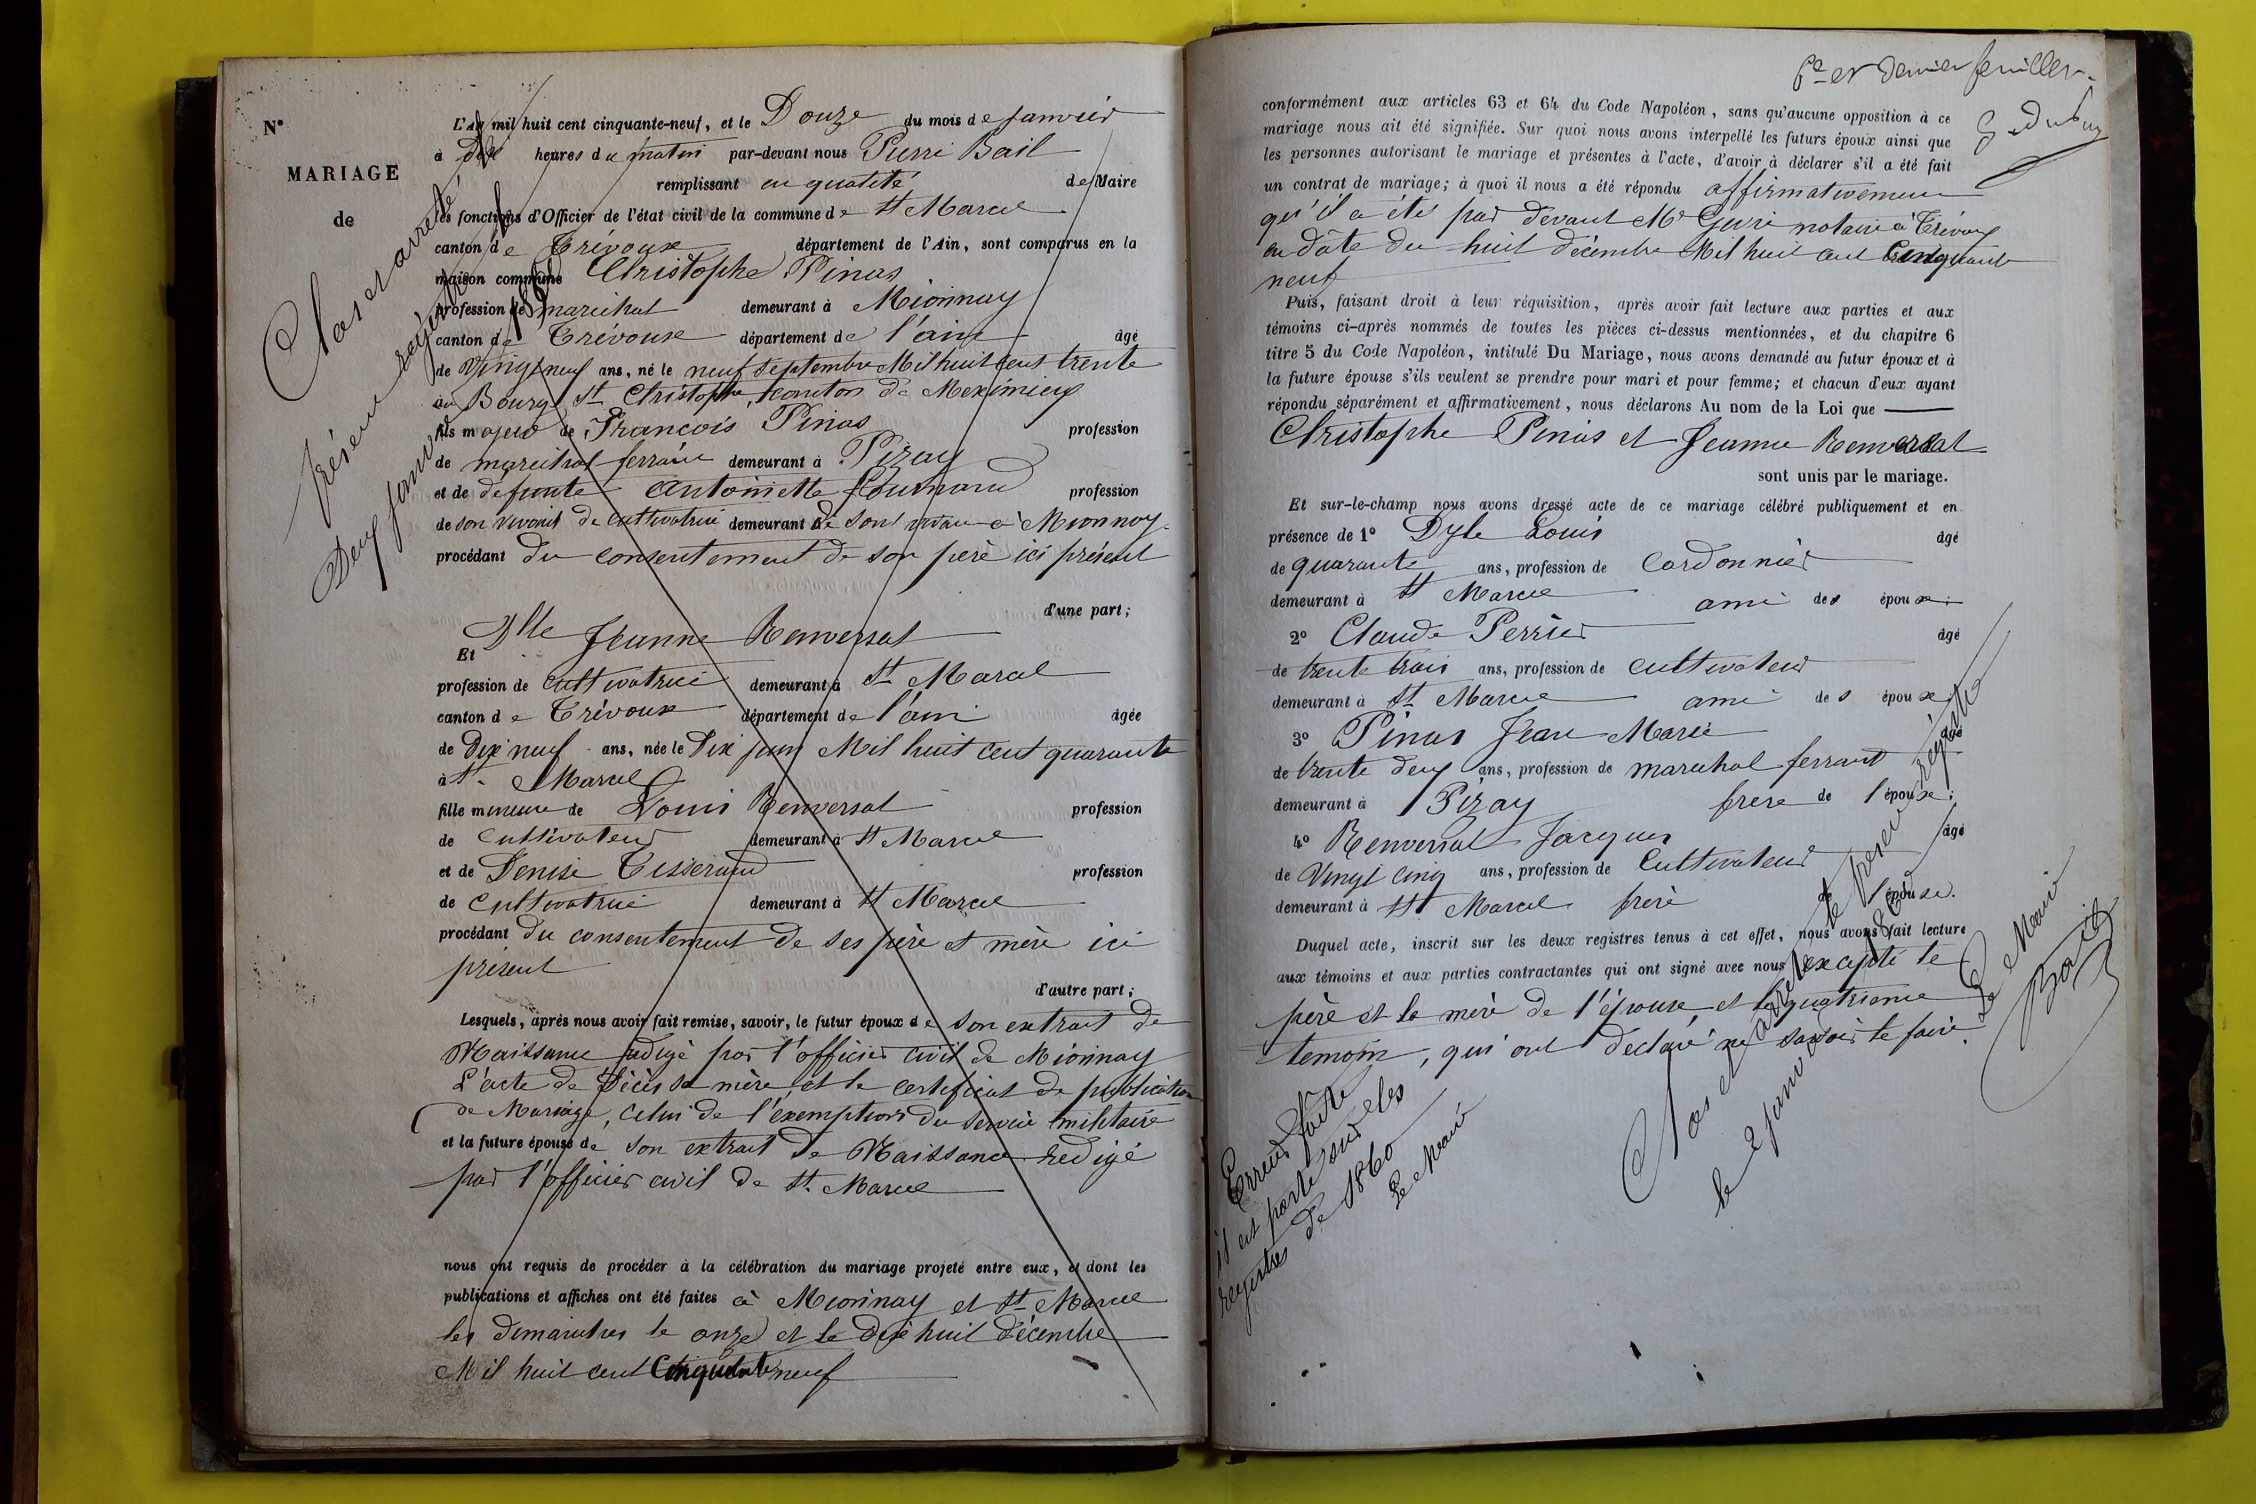 N°
MARIAGE
de
L'An mil huit cent cinquante-neuf, et le Douze du mois de janvier
à dix heures du matin par-devant nous Pierre Bail
remplissant en qualité de Maire
les fonctions d'Officier de l'état civil de la commune de St Marcel
canton de Trévoux département de l'Ain, sont comparus en la
maison commune Christophe Pinas
profession de marechal demeurant à Mionnay
canton de Trévoux département de l'ain âgé
de Vingt neuf ans, né le neuf septembre Mil huit cent trente
au Bourg St Christophe, canton de Meximieu
fils majeur de Francois Pinas profession
de marechal ferrant demeurant à Pizay
et de defunte antoinette profession
de son vivant de cultivatrice demeurant de son vivan à Mionnay
procédant du consentement de son père ici présent
d'une part;
Et Dlle Jeanne Renversat
profession de cultivatrice demeurant à St Marcel
canton de Trévoux département de l'ain âgée
de Dix neuf ans, née le Dix juin Mil huit cent quarante
à St Marcel
fille mineure de Louis Renversat profession
de Cultivateur demeurant à St Marcel
et de Denise Tisserand profession
de Cultivatrice demeurant à St Marcel
procédant du consentement de ses père et mère ici
présent
d'autre part;
Lesquels, après nous avoir fait remise, savoir, le futur époux de son extrait de
Naissance redigé par l'officier civil de Mionnay
L'acte de Décès sa mère et le certificat de publication
de Mariage, celui de l'exemption du service militaire
et la future épouse de son extrait de Naissance redigé
par l'officier civil de St Marcel
nous ont requis de procéder à la célébration du mariage projeté entre eux, et dont les
publications et affiches ont été faites à Mionnay et St Marcel
les dimanches le onze et le dix huit décembre
Mil huit cent Cinquante neuf
Clos et arreté le
présent registre le
Deux janvier 1860
6e et dernier feuillet.
conformément aux articles 63 et 64 du Code Napoléon, sans qu'aucune opposition à ce
mariage nous ait été signifiée. Sur quoi nous avons interpellé les futurs époux ainsi que
les personnes autorisant le mariage et présentes à l'acte, d'avoir à déclarer s'il a été fait
un contrat de mariage; à quoi il nous a été répondu affirmativement
qu'il a été par devant Me notaire à Trévoux
en date du huit décembre Mil huit cent Cinquante
neuf
Puis, faisant droit à leur réquisition, après avoir fait lecture aux parties et aux
témoins ci-après nommés de toutes les pièces ci-dessus mentionnées, et du chapitre 6
titre 5 du Code Napoléon, intitulé Du Mariage, nous avons demandé au futur époux et à
la future épouse s'ils veulent se prendre pour mari et pour femme; et chacun d'eux ayant
répondu séparément et affirmativement, nous déclarons Au nom de la Loi que
Christophe Pinas et Jeanne Renversat
sont unis par le mariage.
Et sur-le-champ nous avons dressé acte de ce mariage célébré publiquement et en
présence de 1° Dyle Louis âgé
de quarante ans, profession de Cordonnier
demeurant à St Marcel ami des époux;
2° Claude Perrier âgé
de trente trois ans, profession de cultivateur
demeurant à St Marcel ami des époux;
3° Pinas Jean Marie âgé
de trente deux ans, profession de marechal ferrant
demeurant à Pizay frere de l'époux;
4° Renversat Jacques âgé
de Vingt cinq ans, profession de Cultivateur
demeurant à St Marcel frère de l'épouse.
Duquel acte, inscrit sur les deux registres tenus à cet effet, nous avons fait lecture
aux témoins et aux parties contractantes qui ont signé avec nous excepté le
père et la mère de l'épouse et le quatrieme
temoin, qui ont declaré ne savoir le faire.
Clos et arreté le présent registre
le 2 janvier 1860
Le Maire
Bail
Erreur faite
il est porté sur les
registres de 1860
Le Maire